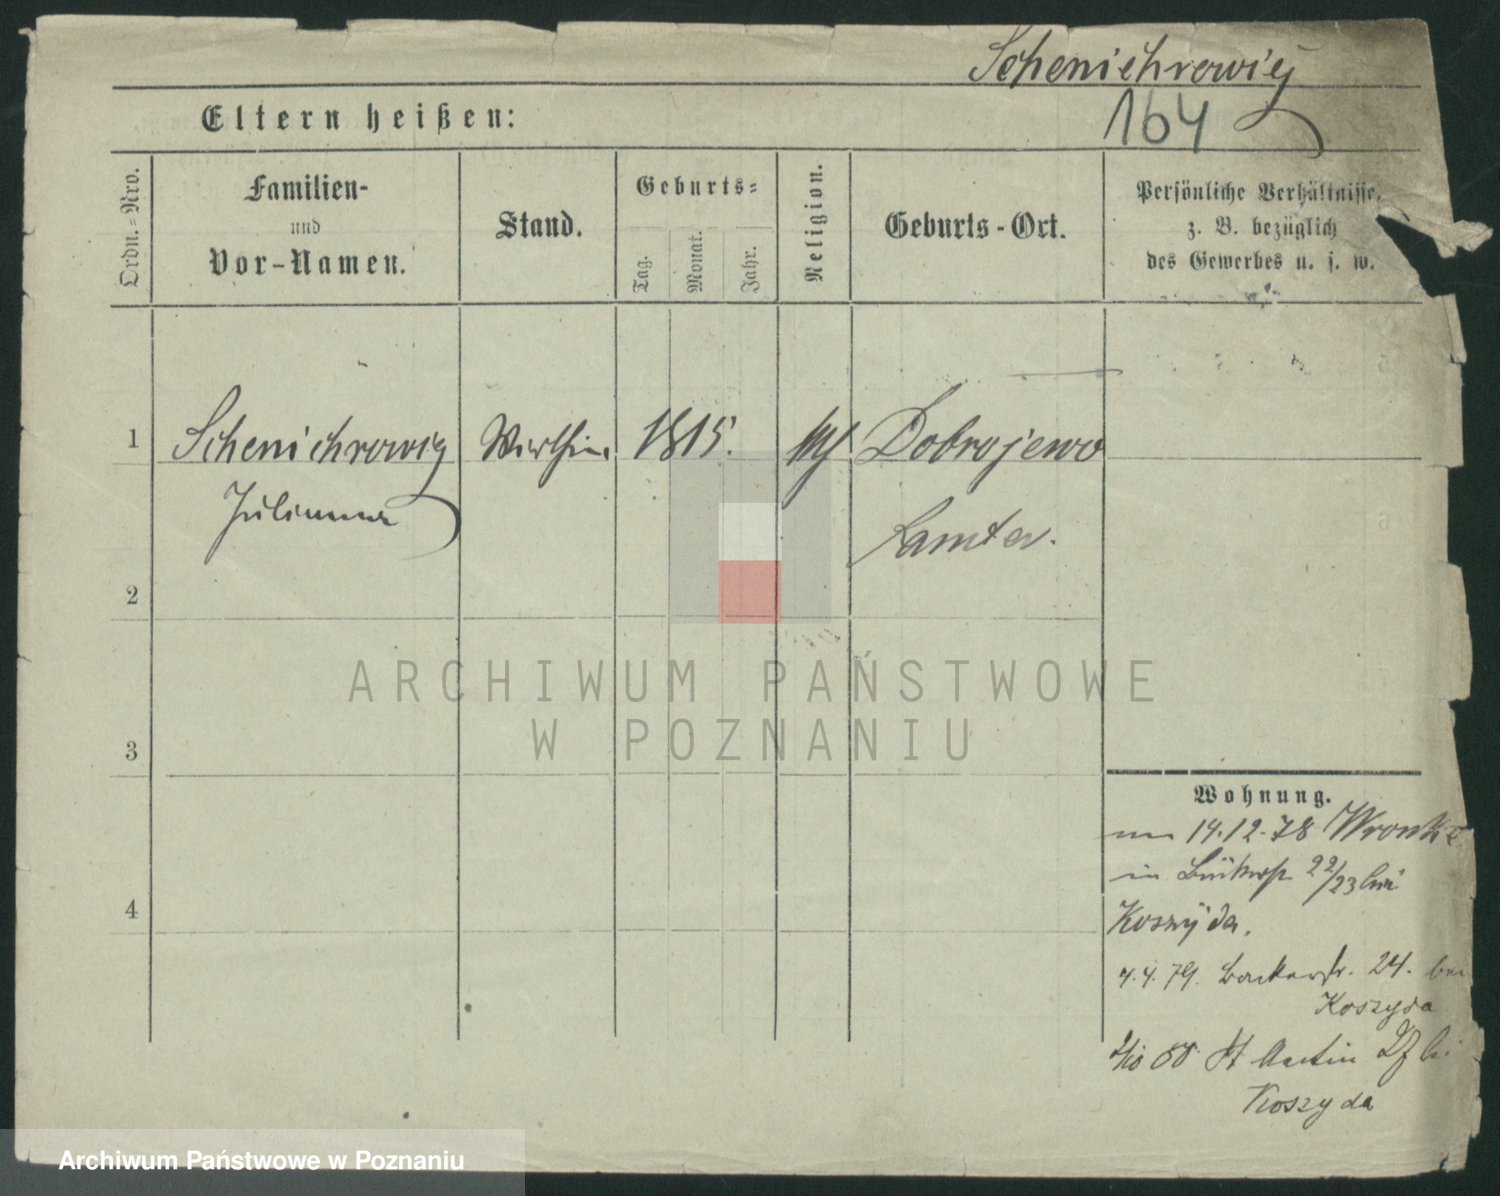 Schenichrowig
164
Eltern heißen:
Ordn.=Nro.
Familien-
und
Vor-Namen.
Stand.
Geburts=
Tag.
Monat.
Jahr.
Religion.
Geburts-Ort.
Persönliche Verhältnisse,
z. B. bezüglich
des Gewerbes u. s. w.
1
Schenichrowig
Julianna
Wirthin
1815.
Dobrojewo
Samter.
2
3
4
ARCHIWUM PAŃSTWOWE
W POZNANIU
Wohnung.
14.12.78 Wronke
in 22/23 bei
Koszyda.
4.4.79. Backerstr. 24. bei
Koszyda
St Martin bei
Koszyda
Archiwum Państwowe w Poznaniu